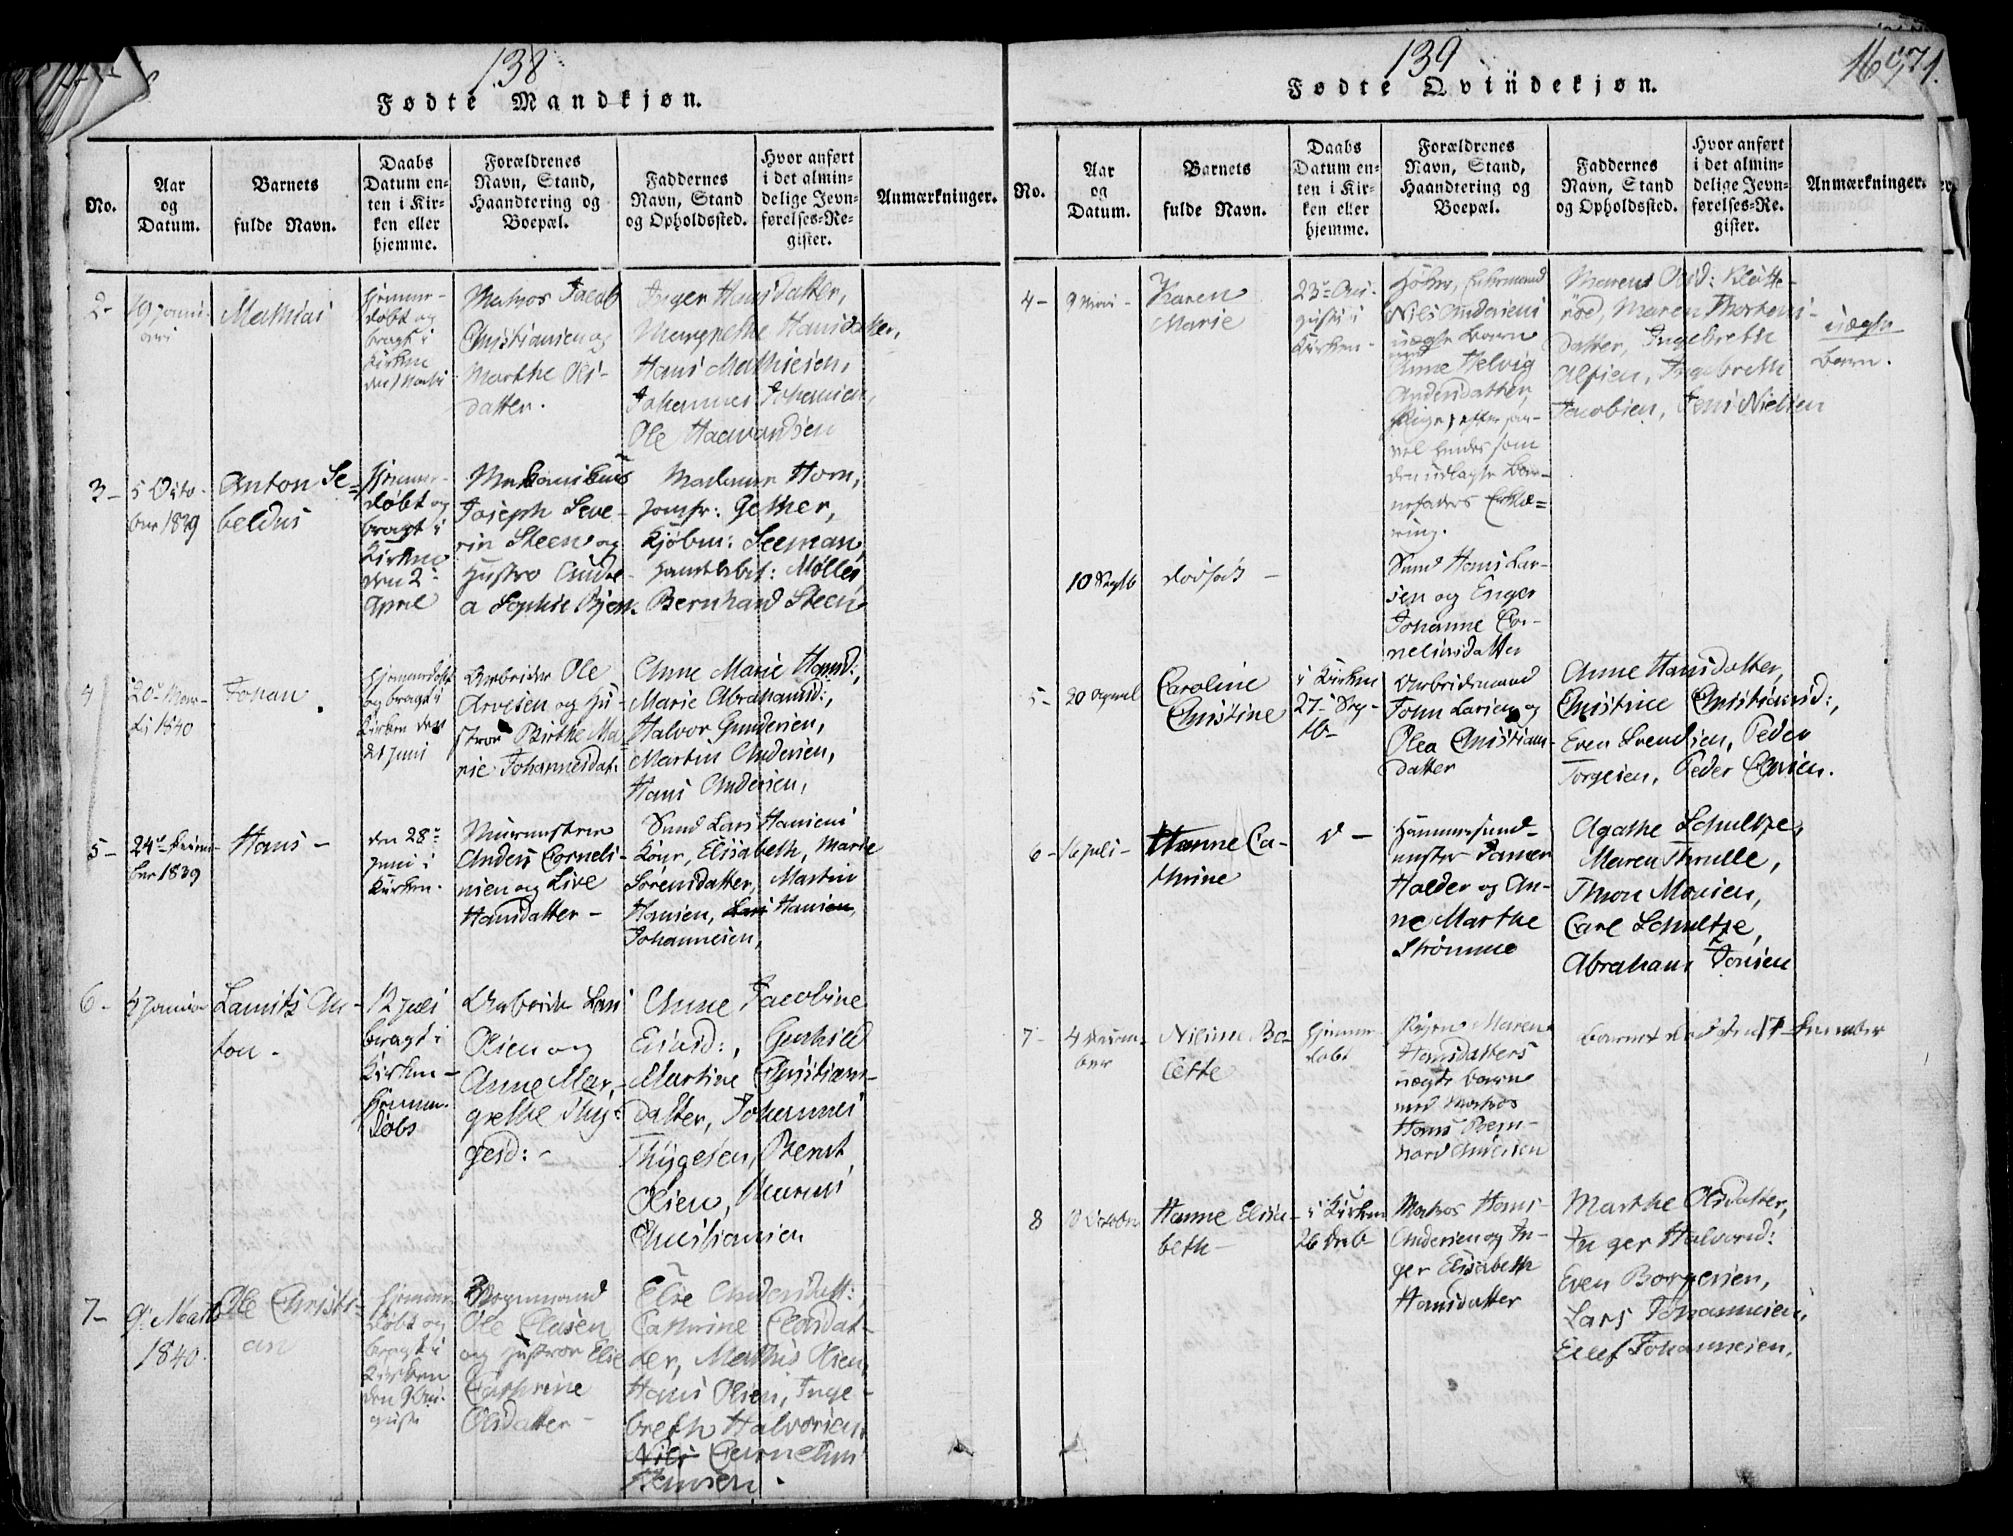 138
Fødte Mandkjøn.
No.
Aar og Datum.
Barnets fulde Navn.
Daabs Datum enten i Kirken eller hjemme.
Forældrenes Navn, Stand, Haandtering og Boepæl.
Faddernes Navn, Stand og Opholdssted.
Hvor anført i det almindelige Jevnførelses-Register.
Anmærkninger.
2-
19 Janu-
ari
Mathias
Hjemme-
døbt og
bragt i
Kirken
Matros Jacob
Christiansen og
Marthe Ols-
datter.
Inger Hansdatter,
Margrethe Hansdatter,
Hans Mathiesen,
Johannes Johansen,
Ole Haavardsen
3-
5 Octo-
ber 1839
Anton Se-
beldus
Hjemme-
døbt og
bragt i
Kirken
den 2-
April
Mekanikus
Joseph Seve-
rin Steen og
Hustro Andre-
a Sophie Bjerk
Madame Horn,
Jomfr: Gether,
Kjøbm: Seeman,
Handelsbet: Møller
Bernhard Steen
4
20- Mar-
ti 1840
Johan.
Hjemmedøbt
og bragt i
Kirken den
21 Juni
Arbeider Ole
Arvesen og Hu-
stroe Birthe Ma-
rie Johannesdat.
Anne Marie Hansd:,
Marie Abrahamsd:,
Halvor Gundersen,
Martin Andersen,
Hans Andersen,
5-
24de Decem-
ber 1839
Hans -
den 28-
Juni i
Kirken.
Muurmester
Anders Corneli-
usen og Live
Hansdatter -
Sund Lars Hansens
Kone, Elisabeth, Marie
Sørensdatter, Martin
Hansen, Lars Hansen,
Johannesen,
6-
4 Januar
Laurits An-
ton-
12 Juli
bragt i
Kirken-
Hjemme-
døbt
Arbeider Lars
Olsen og
Anne Mar-
grethe Thy-
gesd: -
Anne Jacobine
Eriksd:, Gunhild
Martine Christians-
datter, Johannes
Thygesen, Bernt
Olsen, Marius
Christiansen
7-
9- Marts
1840.
Ole Christi-
an
Hjemme-
døbt og
bragt i
Kirken
den 9 Au-
gusti
Vognmand
Ole Clasen
og Hustroe Else
Cathrine
Olsdatter -
Else Andersdatt:,
Cathrine Clasdat-
der, Mathis Olsen,
Hans Olsen, Inge-
breth Halvorsen,
Niels Cornelius
Hansen.
139
1671.
Fødte Qvindekjøn.
No.
Aar og Datum.
Barnets fulde Navn.
Daabs Datum enten i Kirken eller hjemme.
Forældrenes Navn, Stand, Haandtering og Boepæl.
Faddernes Navn, Stand og Opholdssted.
Hvor anført i det almindelige Jevnførelses-Re. gister.
Anmærkninger.
4-
Karen
Marie
23- Au-
gusti i
Kirken-
Nils Andersens
uægte Barn
med
Anne Helvig
Andersdatter,
Pige, efter saa-
vel hendes som
den udlagte Bar-
nefaders Erklæ-
ring.
rød, Maren Mortens-
datter, Ingebreth
Alfsen, Ingebreth
Jacobsen, Jens Nielsen
uægte
Barn.
10 Septb
dødfødt -
Sund Hans Lar-
sen og Enger
Johanne Cor-
neliusdatter
5-
20 April
Caroline
Christine
i Kirken
27- Sep-
tb-
Arbeidsmand
John Larsen og
Olea Christians-
datter
Anne Hansdatter,
Christine Christiansd:,
Even Svendsen, Peder
Torgesen, Peder Clasen.
6-
16 Juli-
Hanne Ca-
thrine
d -
Haldor og An-
ne Marthe
Strømme
Agathe Schultze,
Maren Thrulle,
Thron Monsen,
Carl Schultze,
Abraham Jonsen
7-
4 Decem-
ber
Nilsine Bo-
lette
Hjemme-
døbt
Pigen Maren
Hansdatters
uægte Barn
med Matros
Hans Bern-
hard Andersen
Barnet død den 17- December
8
18 October
Hanne Elisa-
beth-
i Kirken
26 Decb
Matros Hans
Andersen og In-
ger Elisabeth
Hansdatter
Marthe Olsdatter,
Inger Halvorsd:
Even Borgersen,
Lars Johannesen,
Ellef Johannesen.